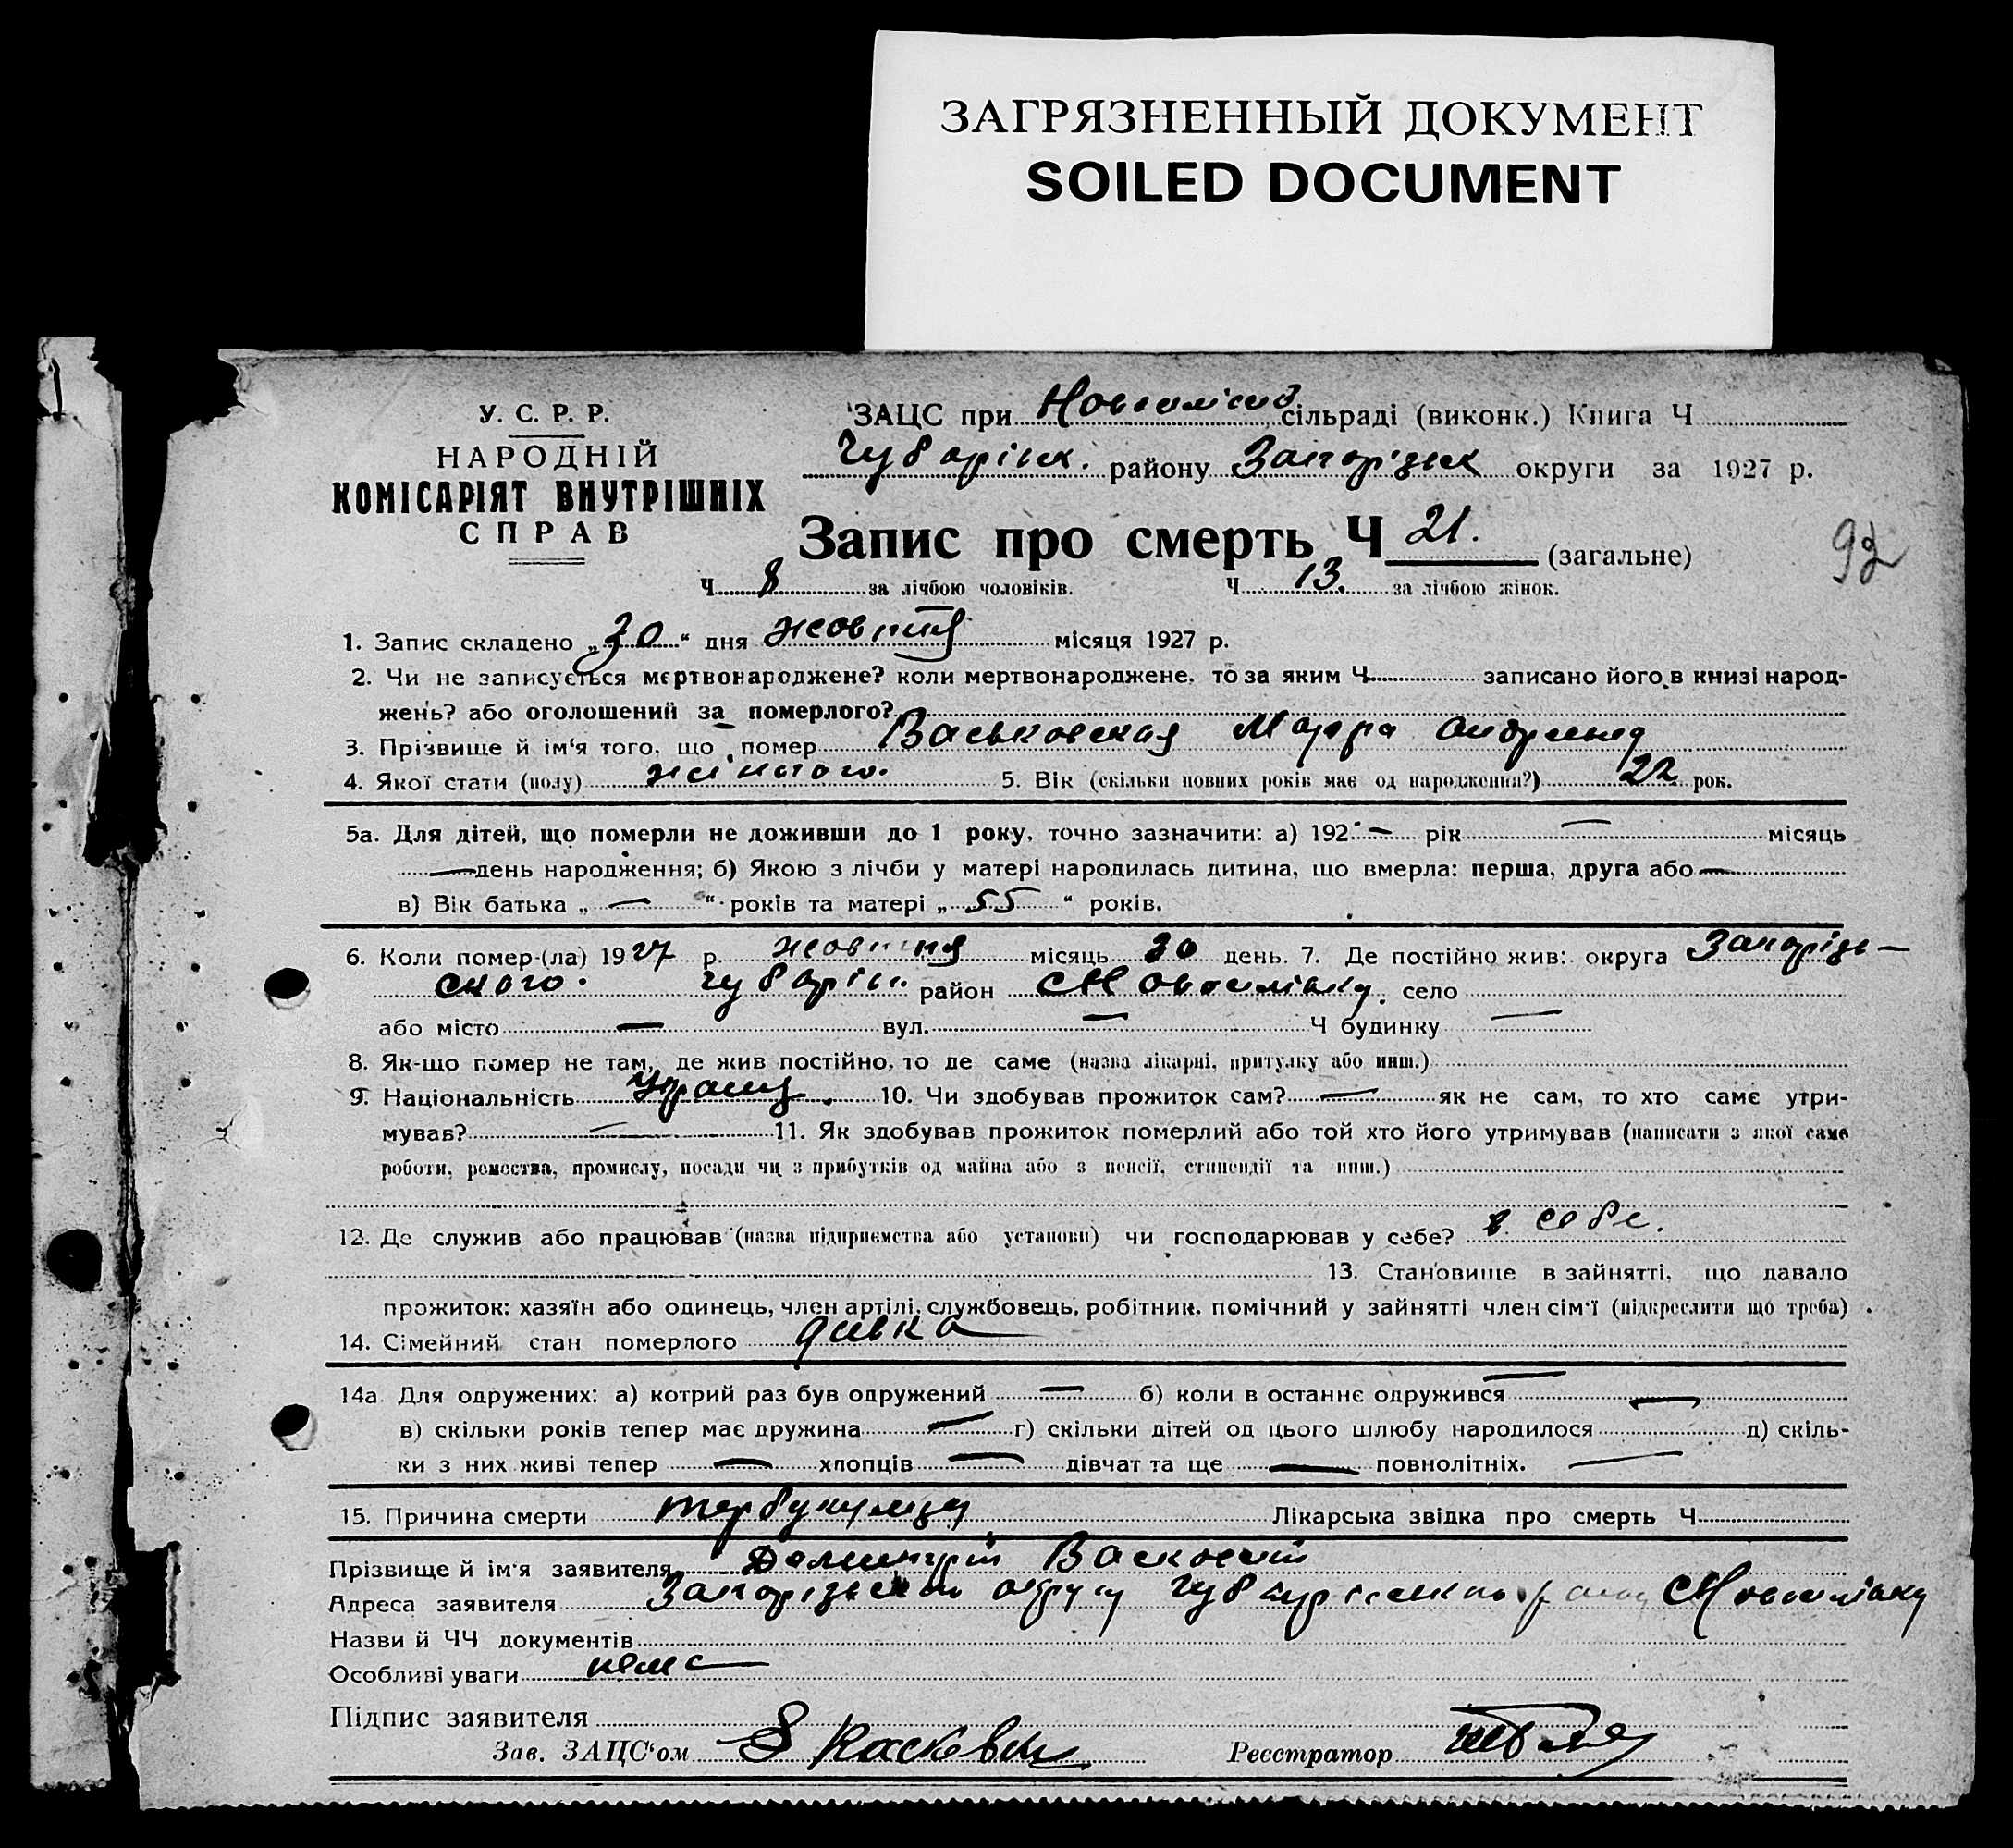 ЗАГРЯЗНЕННЫЙ ДОКУМЕНТ
SOILED DOCUMENT
У. С. Р. Р.
НАРОДНІЙ
КОМІСАРІЯТ ВНУТРІШНІХ
СПРАВ
ЗАЦС при сільраді (виконк.) Книга Ч
Чубарівськ. району Запорізьк округи за 1927 р.
Запис про смерть Ч 21. (загальне)
92
Ч 8 за лічбою чоловіків. Ч 13. за лічбою жінок.
1. Запис складено „30“ дня жовтня місяця 1927 р.
2. Чи не записується мертвонароджене? коли мертвонароджене, то за яким Ч записано його в книзі народ-
жень? або оголошений за померлого?
3. Прізвище й ім‘я того, що помер Васьковская Марфа
4. Якої стати (полу) жіночого. 5. Вік (скільки повних років має од народження?) 22 рок.
5а. Для дітей, що померли не доживши до 1 року, точно зазначити: а) 192 — рік — місяць
— день народження; б) Якою з лічби у матері народилась дитина, що вмерла: перша, друга або —
в) Вік батька „ — “ років та матері „ 55 “ років.
6. Коли помер-(ла) 1927 р. жовтня місяць 30 день. 7. Де постійно жив: округа Запорізь-
ского. Чубарівс. район село
або місто — вул. — Ч будинку —
8. Як-що помер не там, де жив постійно, то де саме (назва лікарні, притулку або инш.)
9. Національність 10. Чи здобував прожиток сам? — як не сам, то хто саме утри-
мував? — 11. Як здобував прожиток померлий або той хто його утримував (написати з якої саме
роботи, ремества, промислу, посади чи з прибутків од майна або з пенсії, стипендії та инш.)
12. Де служив або працював (назва підприємства або установи) чи господарював у себе? в себе.
13. Становище в зайнятті, що давало
прожиток: хазяїн або одинець, член артілі, службовець, робітник, помічний у зайнятті член сім‘ї (підкреслити що треба)
14. Сімейний стан померлого дивка
14а. Для одружених: а) котрий раз був одружений — б) коли в останнє одружився —
в) скільки років тепер має дружина — г) скільки дітей од цього шлюбу народилося д) скіль-
ки з них живі тепер — хлопців — дівчат та ще — повнолітніх. —
15. Причина смерти Лікарська звідка про смерть Ч
Прізвище й ім‘я заявителя
Адреса заявителя
Назви й ЧЧ документів
Особливі уваги нема
Підпис заявителя
Зав. ЗАЦС‘ом
Реєстратор